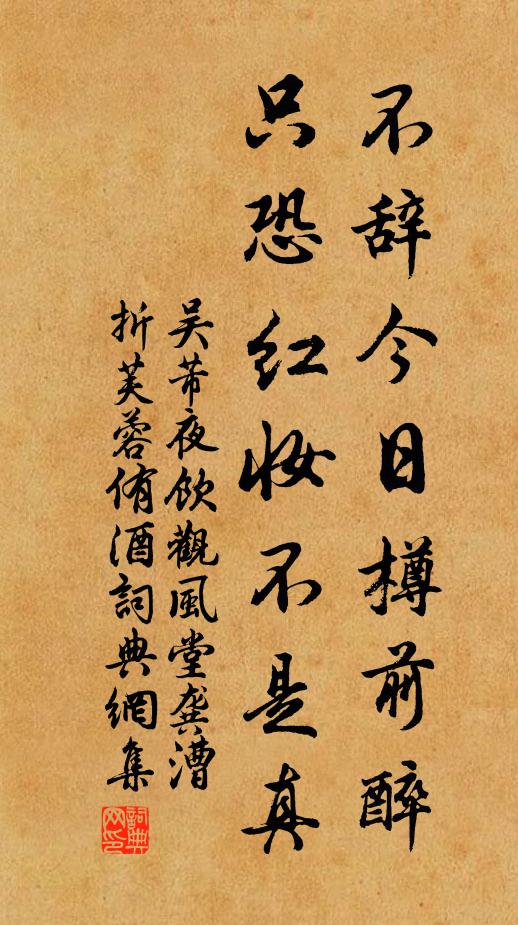 不辞今日樽前醉
只恐红妆不是真
吴芾夜饮觀風堂龚漕
折芙蓉侑酒詞典網集
詞典网印